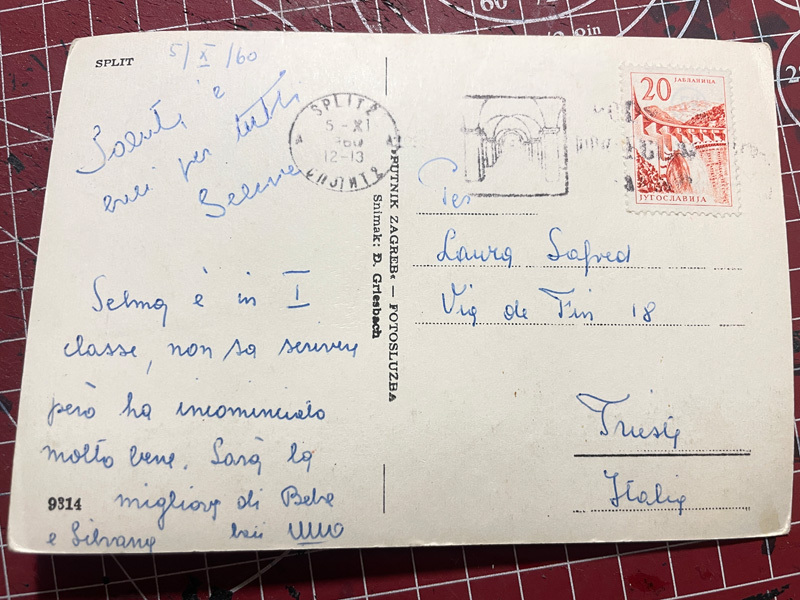 SPLIT
5/X/60
Saluti e
baci per tutti
Selma è in I
classe, non sa scrivere
però ha incominciato
molto bene. Sarà la
migliore di Bebe
e Silvana baci NINO
9314
PUTNIK ZAGREB« — FOTOSLUZBA
Snimak: Đ. Griesbach
SPLIT 2
5-XI
60
12-13
СПЛИТ 2
20
ЈАБЛАНИЦА
ЈУГОСЛАВИЈА
Per
Laura Safred
Via de Fin 18
Trieste
Italia